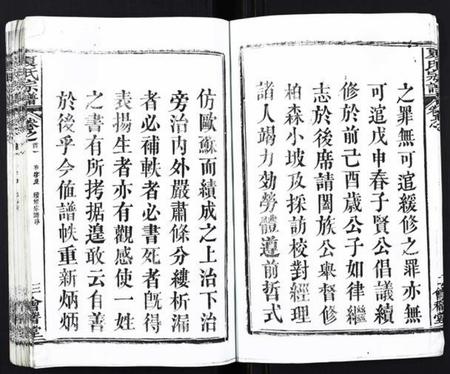 夏氏宗譜
卷之
之罪無可逭緩修之罪亦無
可逭戊申春子賢公倡議續
修於前己酉歲公子如律繼
志於後席請闔族公舉督修
柏森小坡及採訪校對經理
諸人竭力効勞體遵前哲式
仿歐蘇而績成之上治下治
旁治內外嚴肅條分縷析漏
者必補軼者必書死者旣得
表揚生者亦有觀感使一姓
之書有所考据遑敢云有善
於後乎今値譜帙重新炳炳
夏氏宗譜
卷之
會稽堂